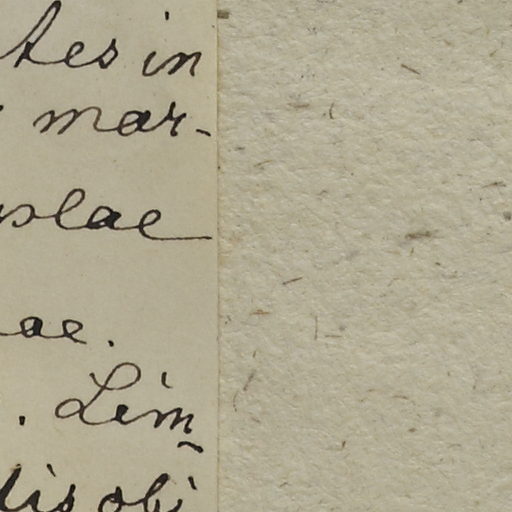 tes in
mar-
slae
ae.
. Lim-
lis obi